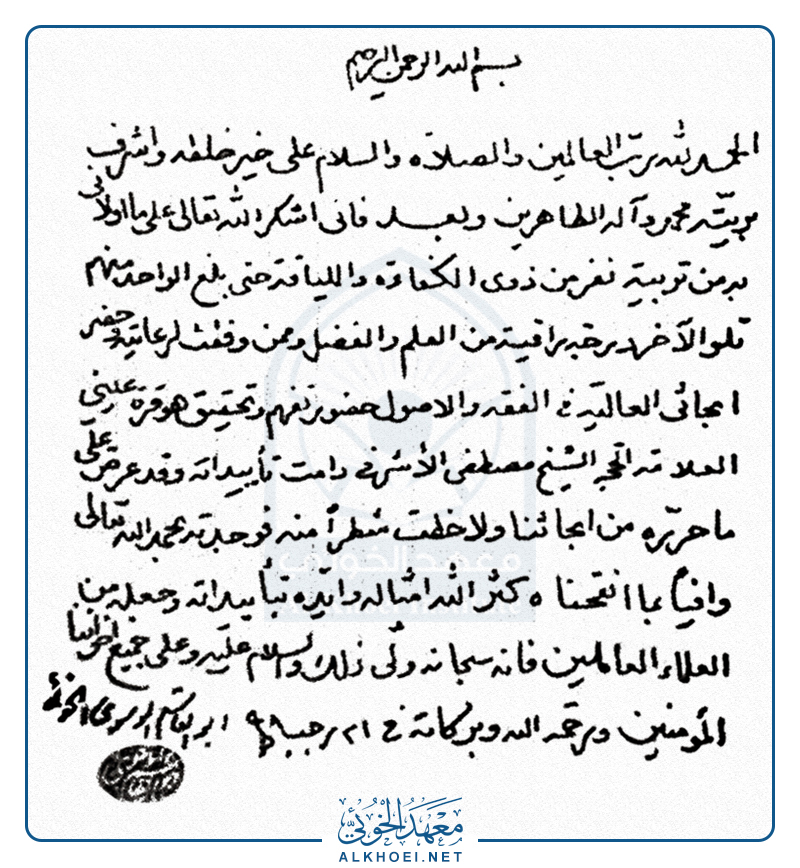 بسم الله الرحمن الرحيم
الحمد لله رب العالمين والصلاة والسلام على خير خلقه واشرف
بريّته محمد وآله الطاهرين وبعد فانى اشكر الله تعالى على ما اولانى
به من تربية نفر من ذوى الكفاءة واللياقة حتى بلغ الواحد منهم
تلو الآخر درجة راقية من العلم والفضل وممن وفقت لرعايته وحضر
ابحاثى العالية فى الفقه والاصول حضور تفهم وتحقيق هو قرة عينى
العلامة الحجة الشيخ مصطفى الأشرفى دامت تأييداته وقد عرض علىّ
ما حرّره من ابحاثنا ولاحظت شطراً منه فوجدته بحمد الله تعالى
وافياً بما انتحبنا ه كثر الله امثاله وايّده تأييداته وجعله من
العلماء العاملين فانه سبحانه ولى ذلك والسلام عليه وعلى جميع اخواننا
المؤمنين ورحمة الله وبركاته فى ٢١ رجب ابوالقاسم الموسوى الخوئى
معهد الخوئي
معهد الخوئي
ALKHOEI.NET